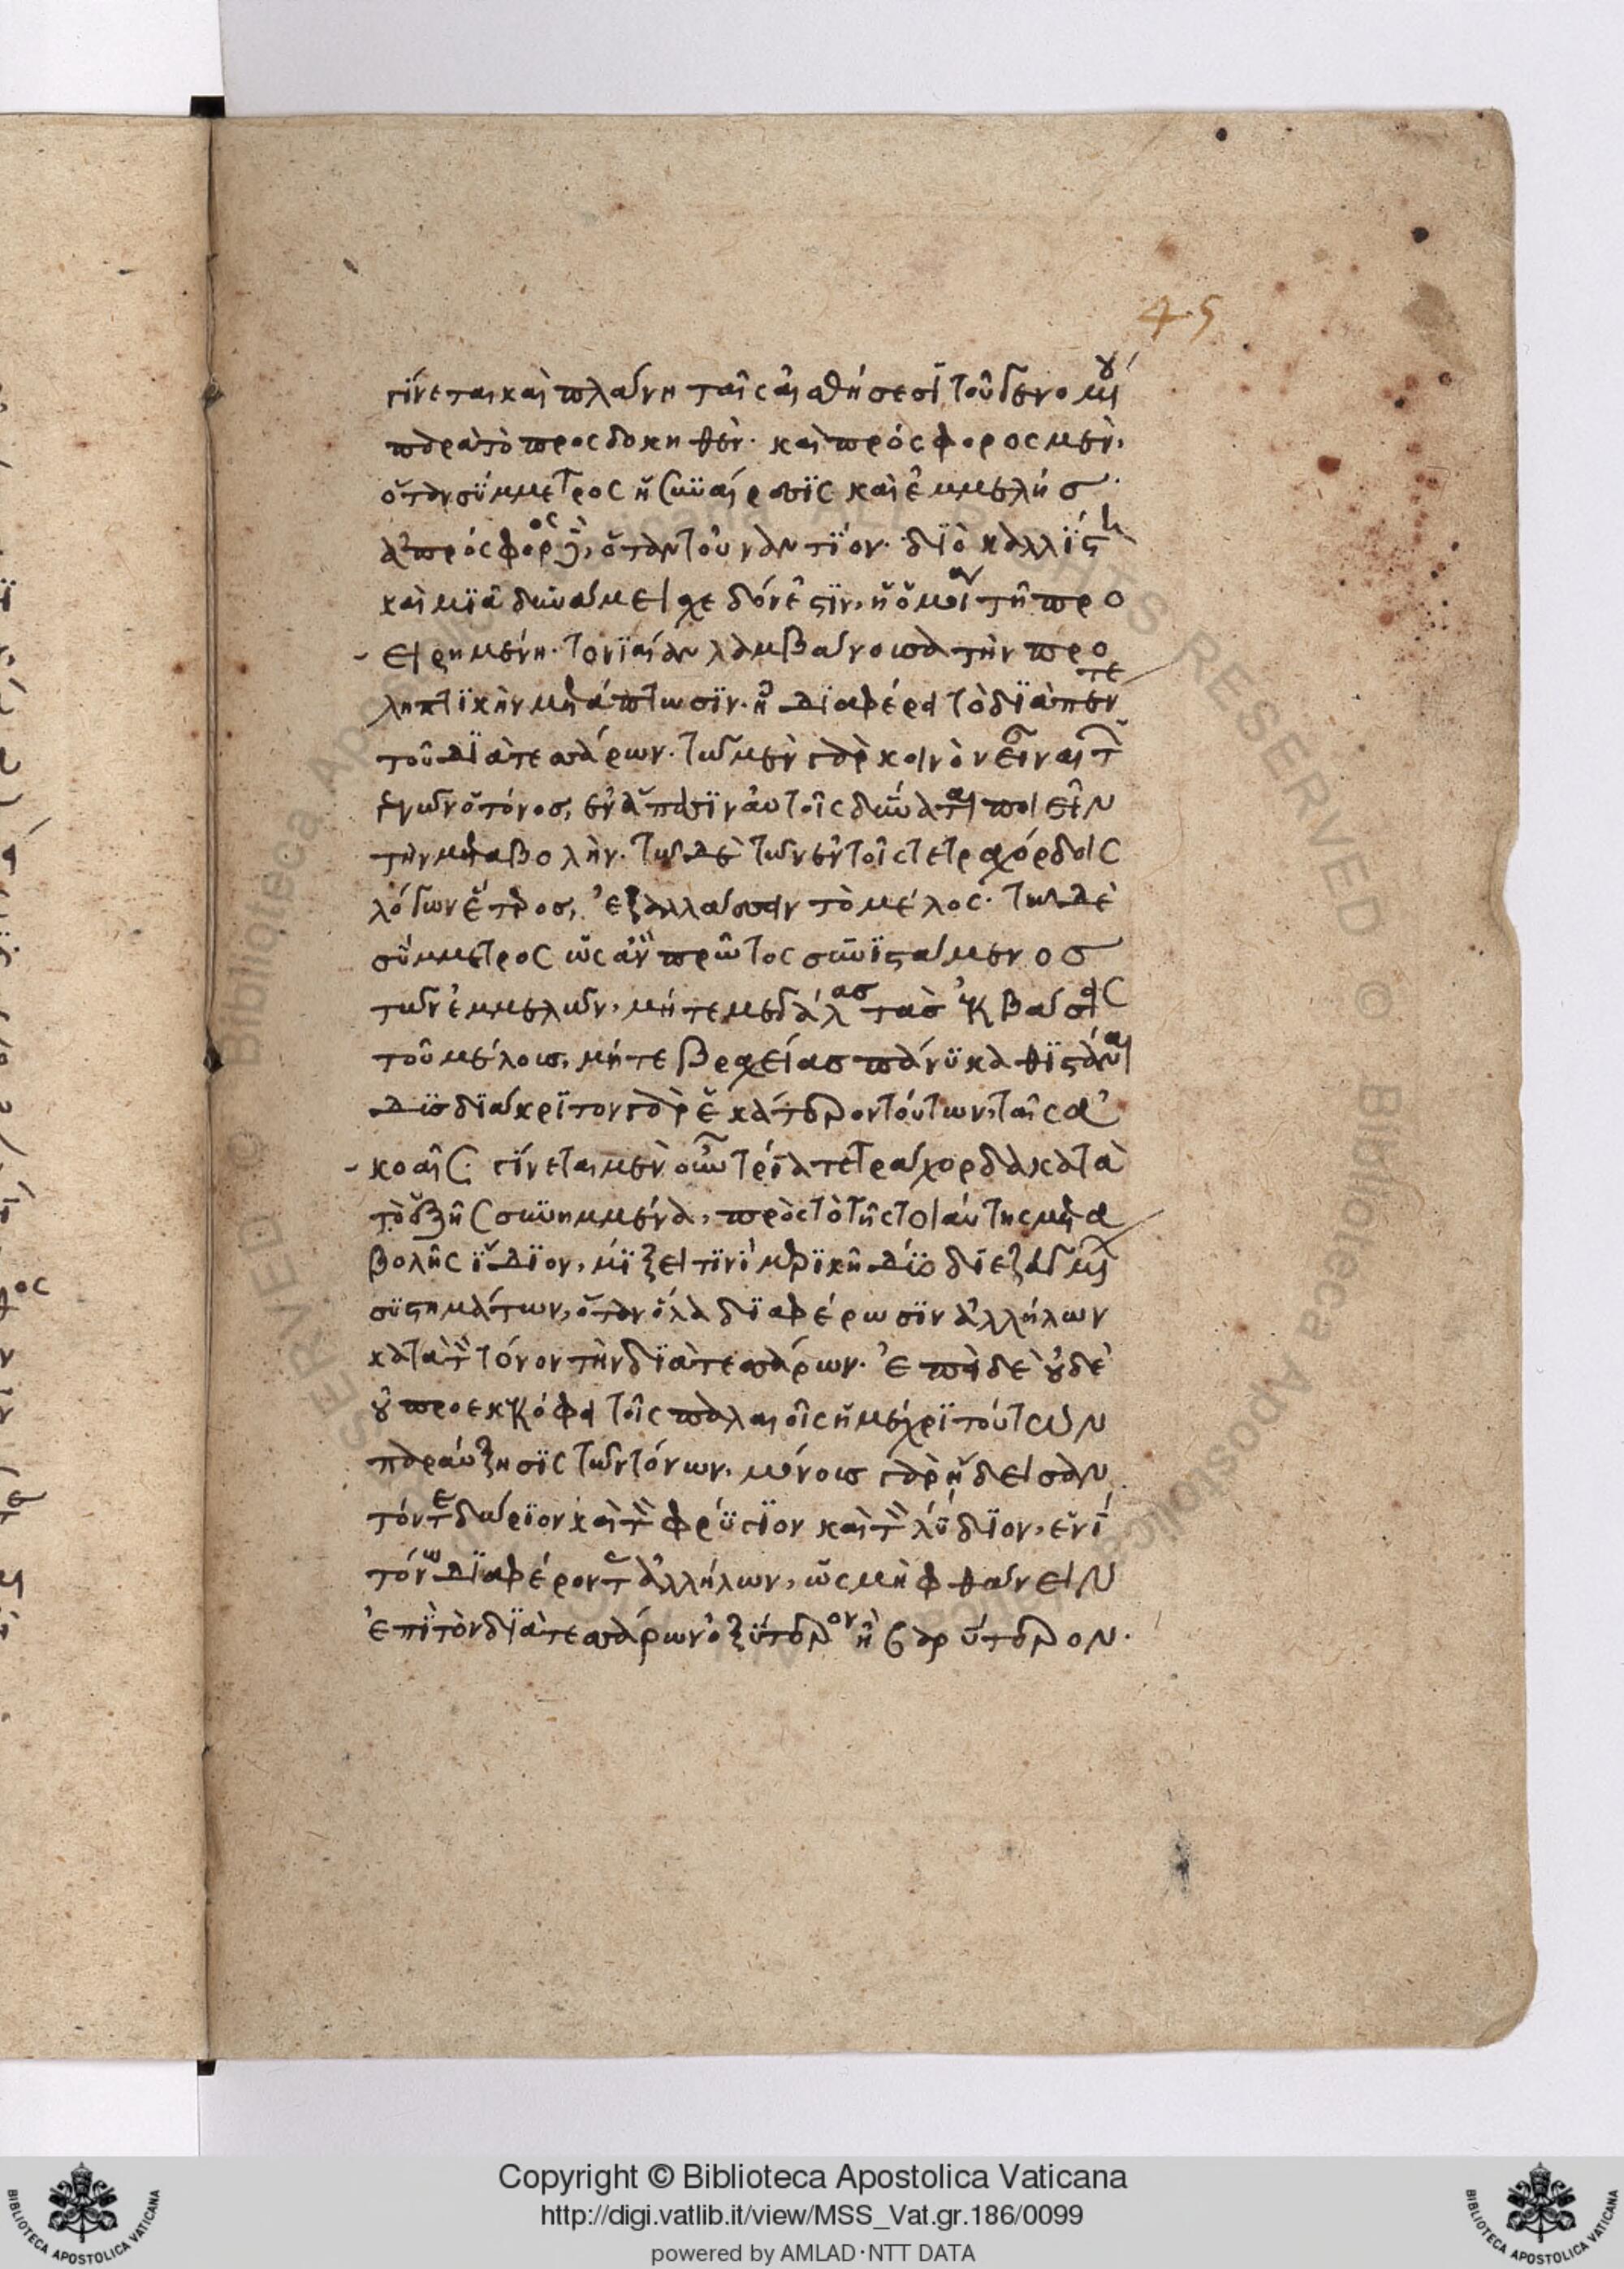 45
γίνεται καὶ πλάνη ταῖς αἰσθήσεσϊ τοῦ γενομένου
παρὰ τὸ προσδοκηθέν. καὶ πρόσφορος μὲν,
ὅταν σύμμετρος ἦ ἡ συναίρεσϊς καὶ ἐμμελής.
ἀπρόσφορος δὲ, ὅταν τοὐναντϊον. δϊὸ καλλίστη
καὶ μϊᾶ δυνάμει σχεδόν ἐστϊν, ἡ ὁμοία τῆ προ
ειρημένη. τονϊαίαν λαμβάνουσα τὴν προ
ληπτϊκὴν μετάπτωσϊν. ἧ δϊαφέρει τὸ δϊὰ πέντε
τοῦ δϊὰ τεσσάρων. τῶ μὲν γὰρ κοινὸν εἶναι τῶν
γενῶν ὁ τόνος, ἐν ἅπασϊν αὐτοῖς δύναται ποιεῖν
τὴν μεταβολὴν. τῶ δὲ τῶν ἐν τοῖς τετραχόρδοις
λόγων ἕτερος, ἐξαλλάσσειν τὸ μέλος. τῶ δὲ
σύμμετρος ὡς ἂν πρῶτος συνϊστάμενος
τῶν ἐμμελῶν, μήτε μεγάλας τὰς ἐκβάσεις
τοῦ μέλους, μήτε βραχείας πάνυ καθϊστάναι
δυσδϊάκρϊτον γὰρ ἑκάτερον τούτων, ταῖς ἀ
κοαῖς. γίνεται μὲν οὖν τρία τετράχορδα κατὰ
τὸ ἑξῆς συνημμένα, πρὸς τὸ τῆς τοιαύτης μετα
βολῆς ἴδϊον, μίξει τϊνὶ μερϊκῆ δύο διεζευγμένων
συστημάτων, ὅταν ὅλα δϊαφέρωσϊν ἀλλήλων
κατὰ τὸν τόνον τὴν δϊὰ τεσσάρων. ἐπεὶ δὲ οὐδὲ
οὐ προεκεκόφει τοῖς παλαιοῖς ἡ μέχρϊ τούτων
παραύξησϊς τῶν τόνων. μόνους γὰρ ἤδεισαν
τόν τε δώρϊον καὶ τὸν φρύγϊον καὶ τὸν λύδϊον, ἑνὶ
τόνω δϊαφέροντας ἀλλήλων, ὡς μὴ φθάνειν
ἐπϊ τὸν δϊὰ τεσσάρων ὀξύτερον ἢ βαρύτερον.
Copyright © Biblioteca Apostolica Vaticana
http://digi.vatlib.it/view/MSS_Vat.gr.186/0099
powered by AMLAD·NTT DATA